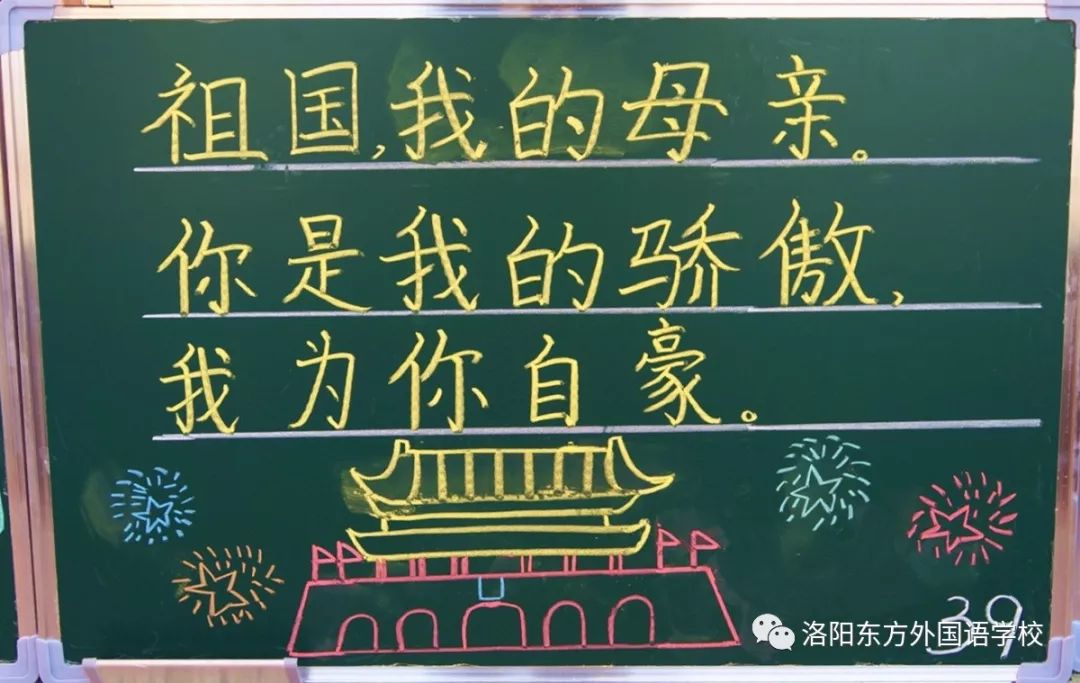 祖国,我的母亲。
你是我的骄傲,
我为你自豪。
39
洛阳东方外国语学校